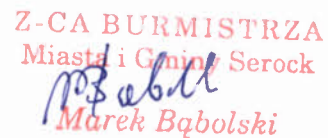 Z-CA BURMISTRZA
Miasta i Gminy Serock
Marek Bąbolski